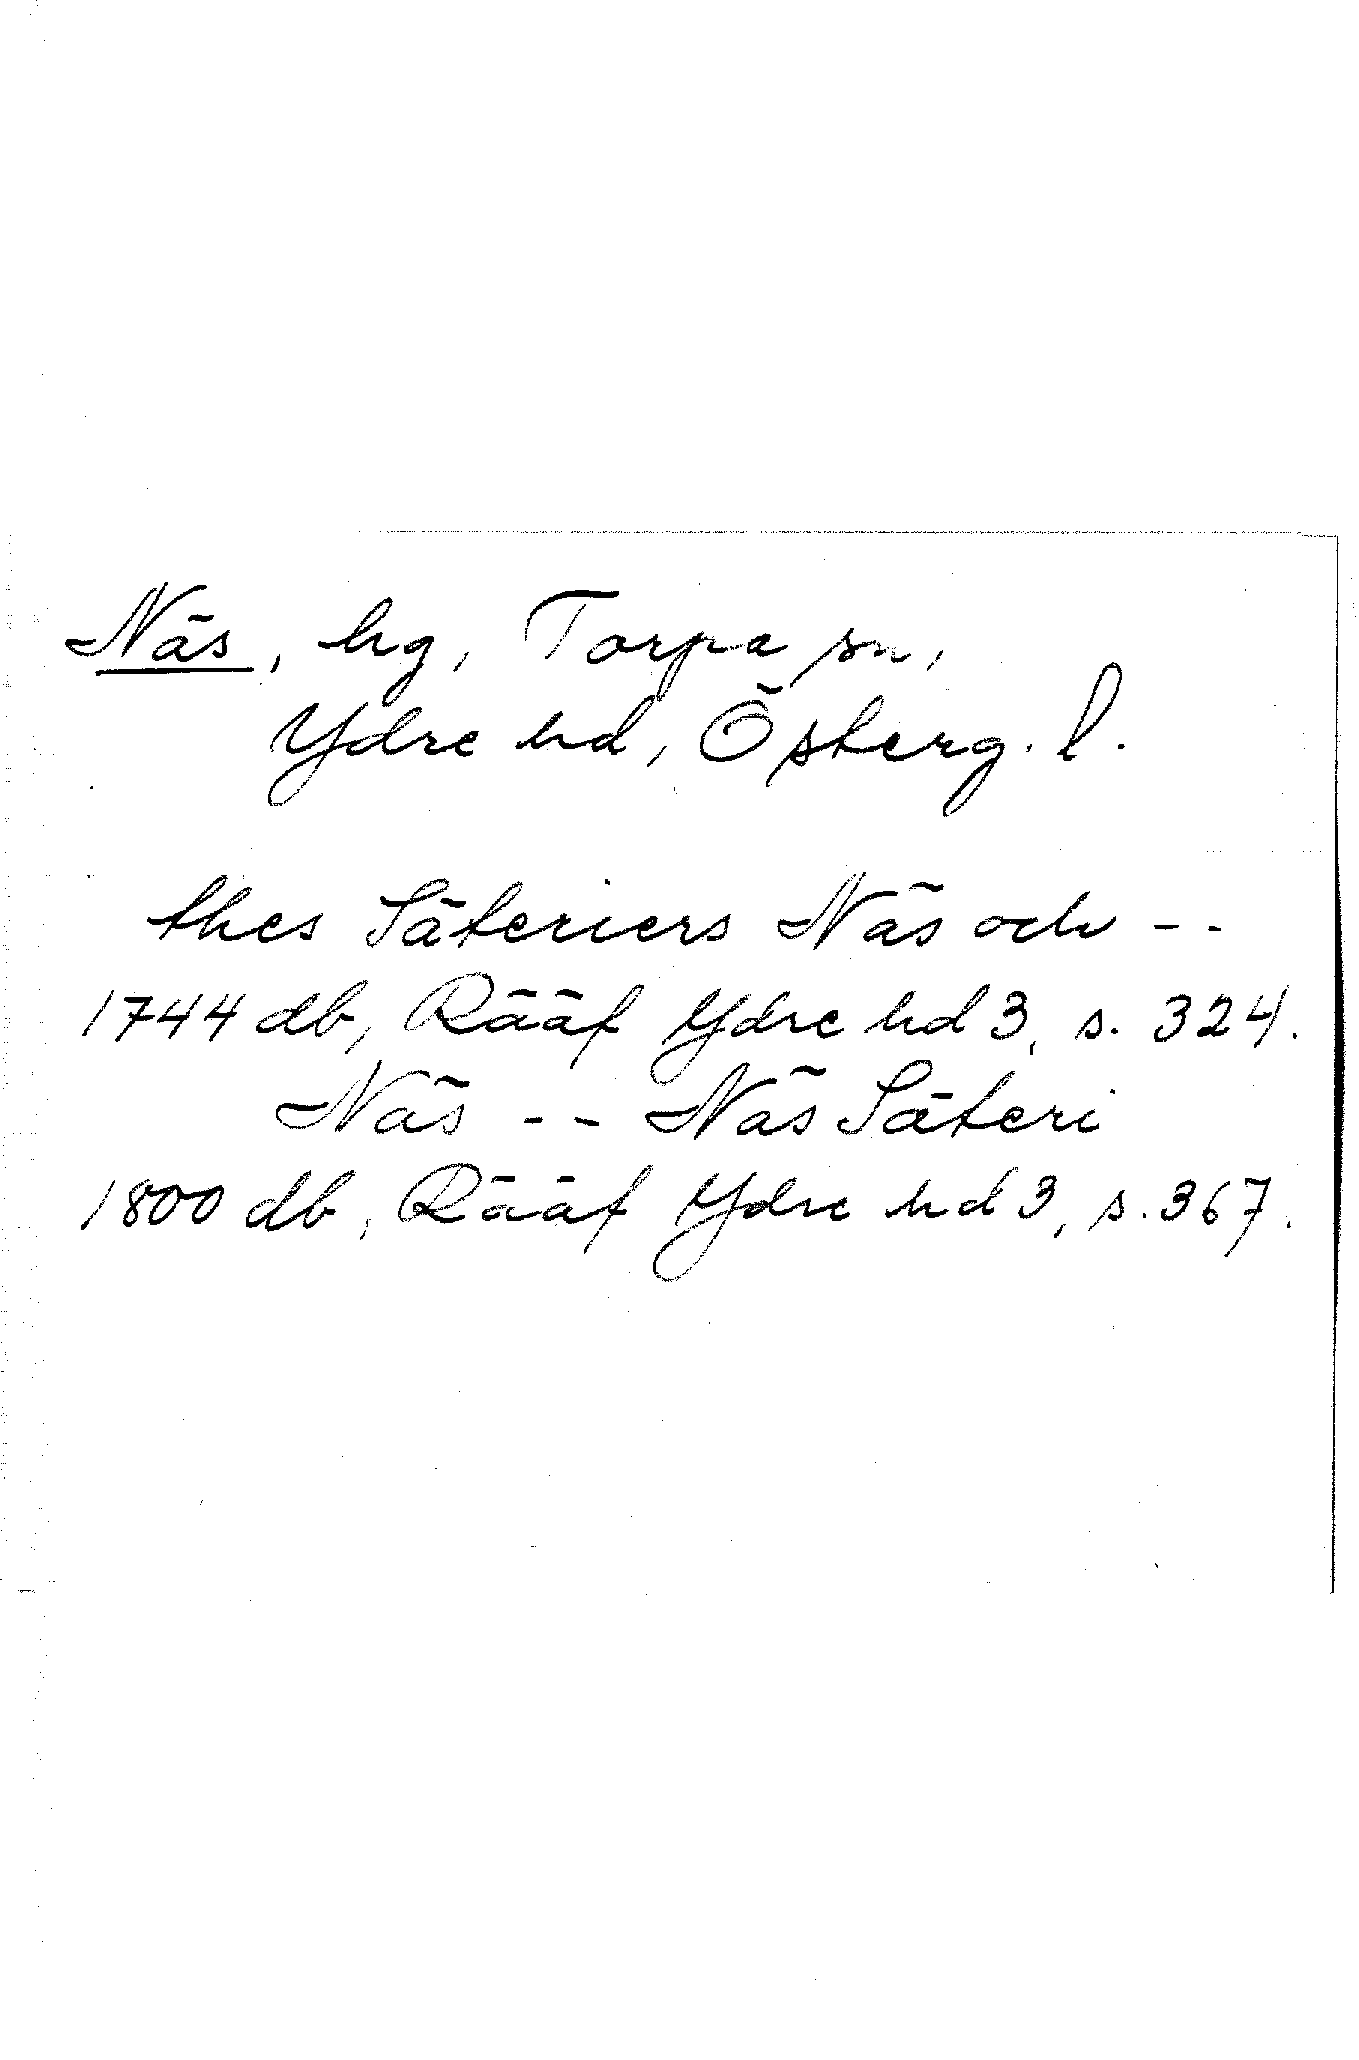 Näs, hg, Torpa sn,
Ydre hd, Österg. l.
thes Säteriers Näs och --
1744 db, Rääf Ydre hd 3, s. 324.
Näs -- Näs Säteri
1800 db, Rääf Ydre hd 3, s. 367.